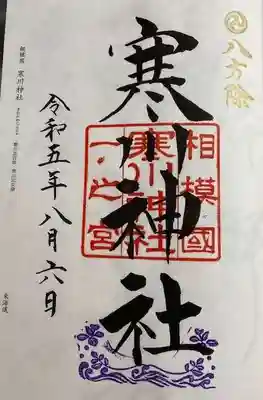 八方除
寒川神社
相模國
寒川神社
一之宮
令和五年八月六日
相模國 寒川神社